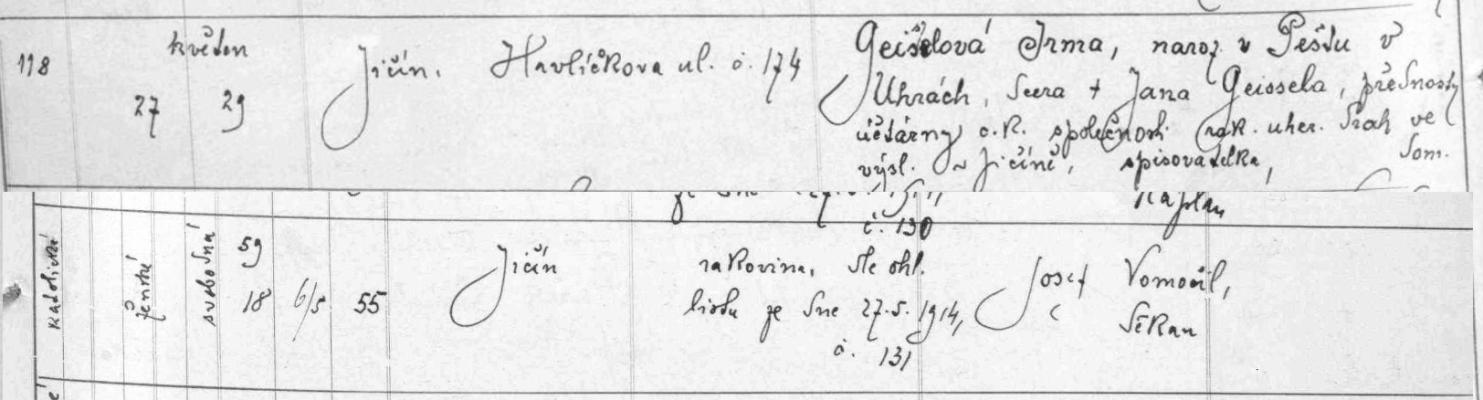 118 květen 27 29 Jičín. Havlíčkova ul. č. 174 Geisslová Irma, naroz. v Pešťu v
Uhrách, dcera + Jana Geissela, přednosty
účtárny c. k. společnosti rak. uher. drah ve
výsl. v Jičíně, spisovatelka, dom.
kaplan
č. 130
katolické ženské svobodná 59 18 6/5 55 Jičín rakovina, dle ohl.
listu ze dne 27.5. 1914,
č. 131
Josef Vomočil,
děkan